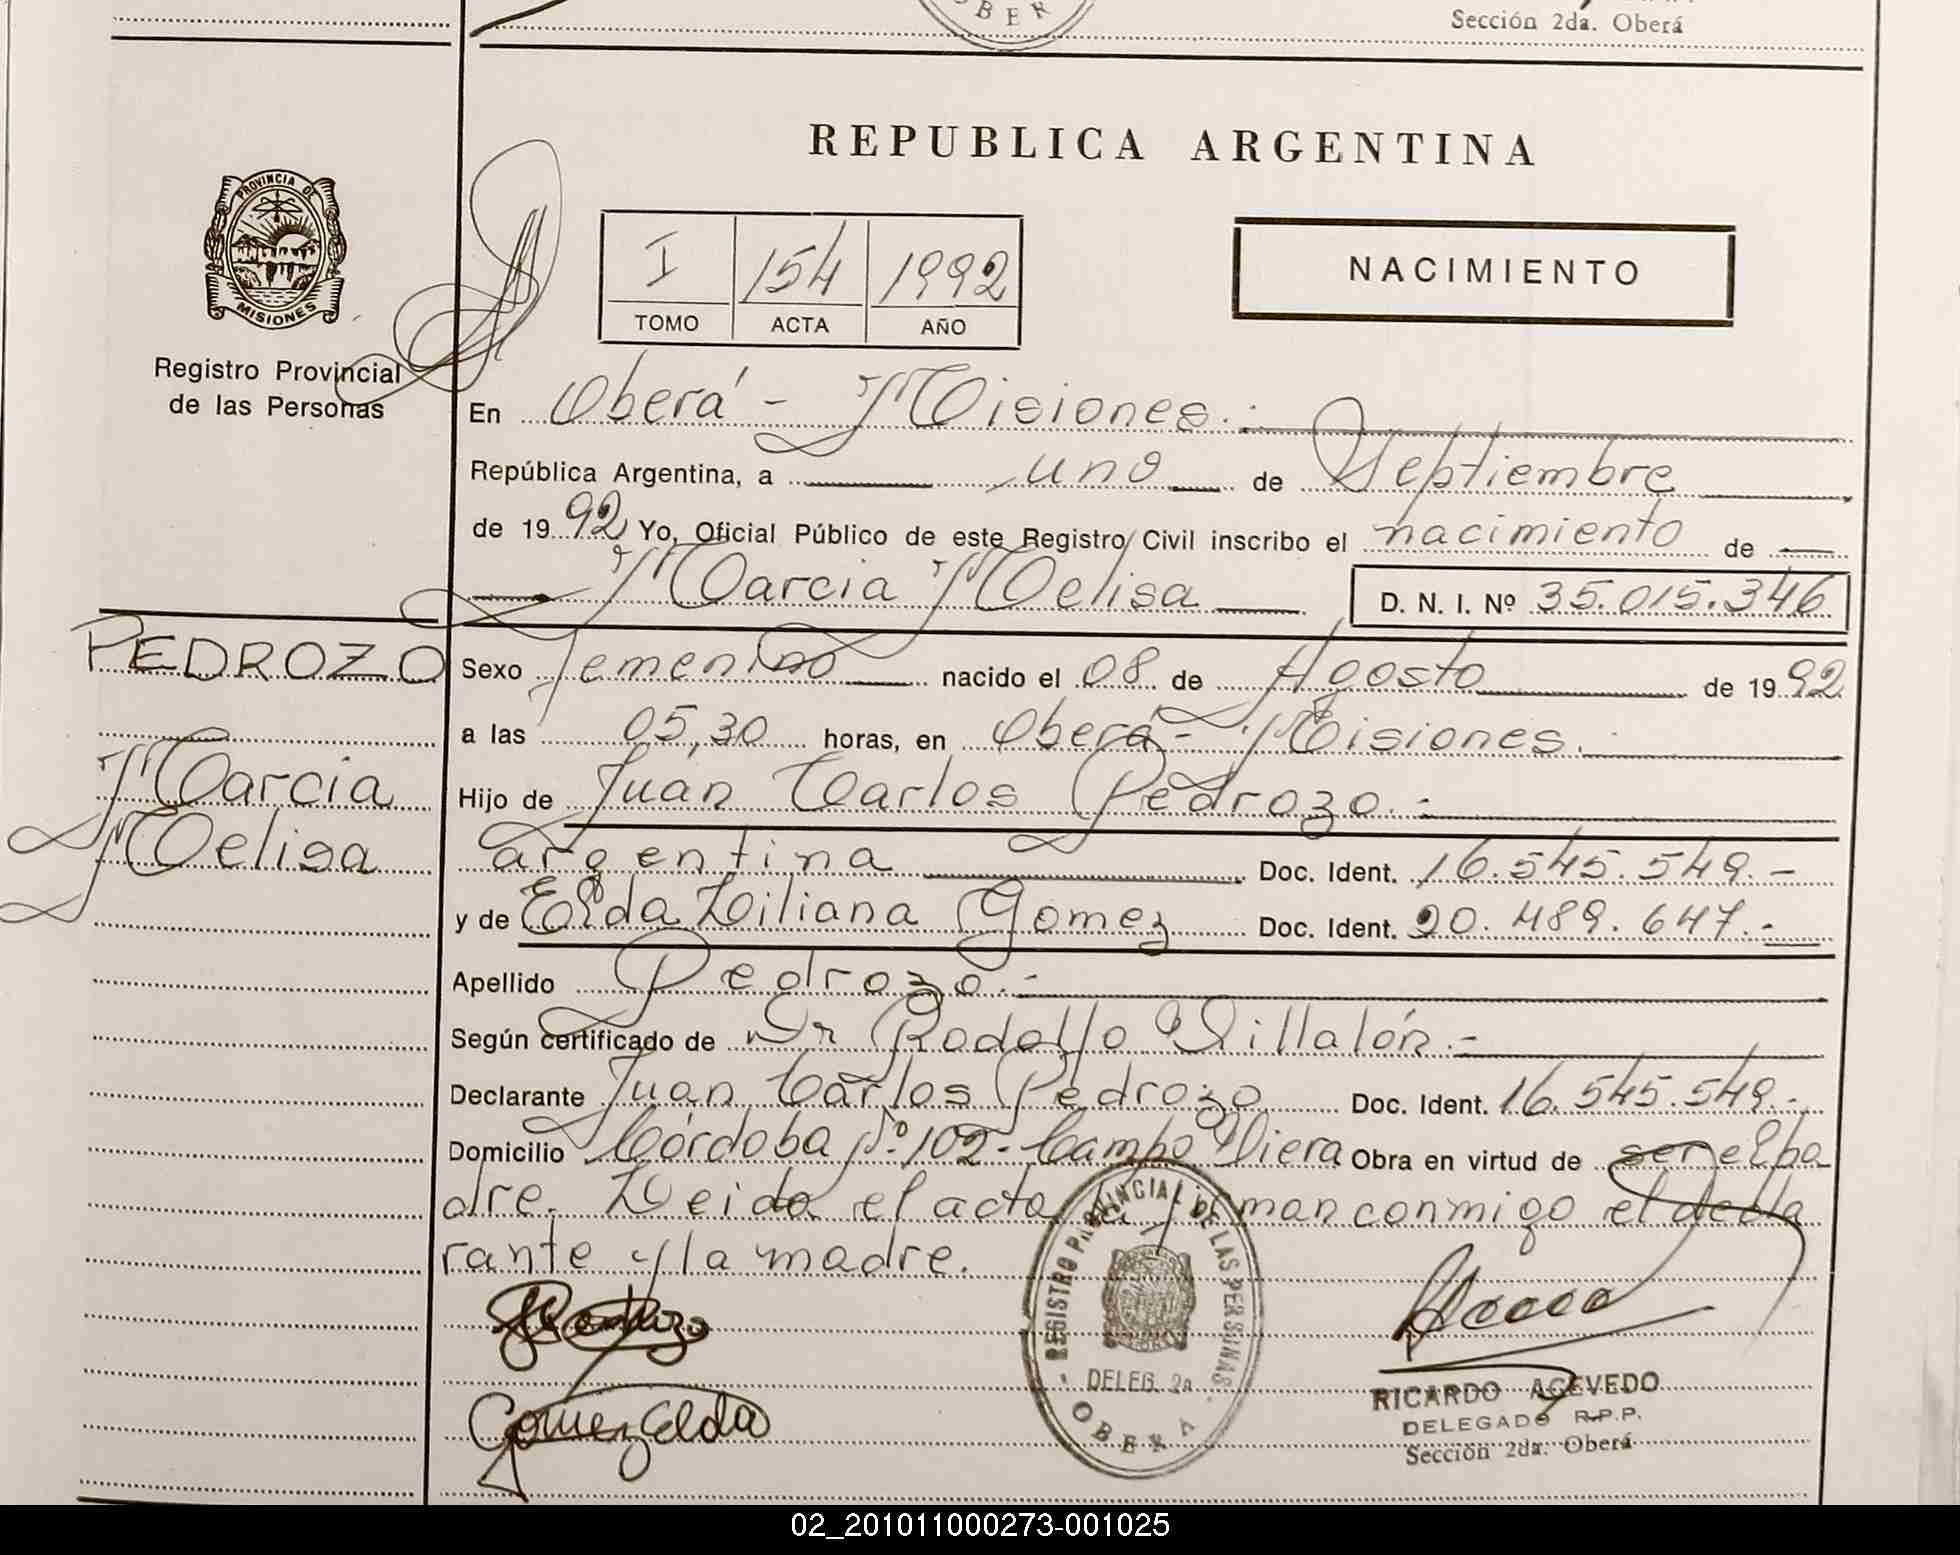 OBER
Sección 2da. Oberá
REPUBLICA ARGENTINA
PROVINCIA DE
MISIONES
Registro Provincial
de las Personas
I 154 1992
TOMO ACTA AÑO
NACIMIENTO
En Oberá - Misiones.-
República Argentina, a uno de Septiembre
de 1992 Yo, Oficial Público de este Registro Civil inscribo el nacimiento de
Marcia Melisa D. N. I. Nº 35.015.346
PEDROZO
Marcia
Melisa
Sexo femenino nacido el 08 de Agosto de 1992
a las 05,30 horas, en Oberá - Misiones.
Hijo de Juan Carlos Pedrozo.-
argentina Doc. Ident. 16.545.549.-
y de Elda Liliana Gomez Doc. Ident. 20.489.647.-
Apellido Pedrozo.-
Según certificado de Dr Rodolfo Villalón.-
Declarante Juan Carlos Pedrozo Doc. Ident. 16.545.549.-
Domicilio Córdoba Nº 102- Campo Viera Obra en virtud de ser el pa
dre. Leida el acta la firman conmigo el decla
rante y la madre.
Gomez Elda
REGISTRO PROVINCIAL DE LAS PERSONAS
DELEG. 2a
OBERA
RICARDO ACEVEDO
DELEGADO R.P.P.
Sección 2da. Oberá
02_201011000273-001025